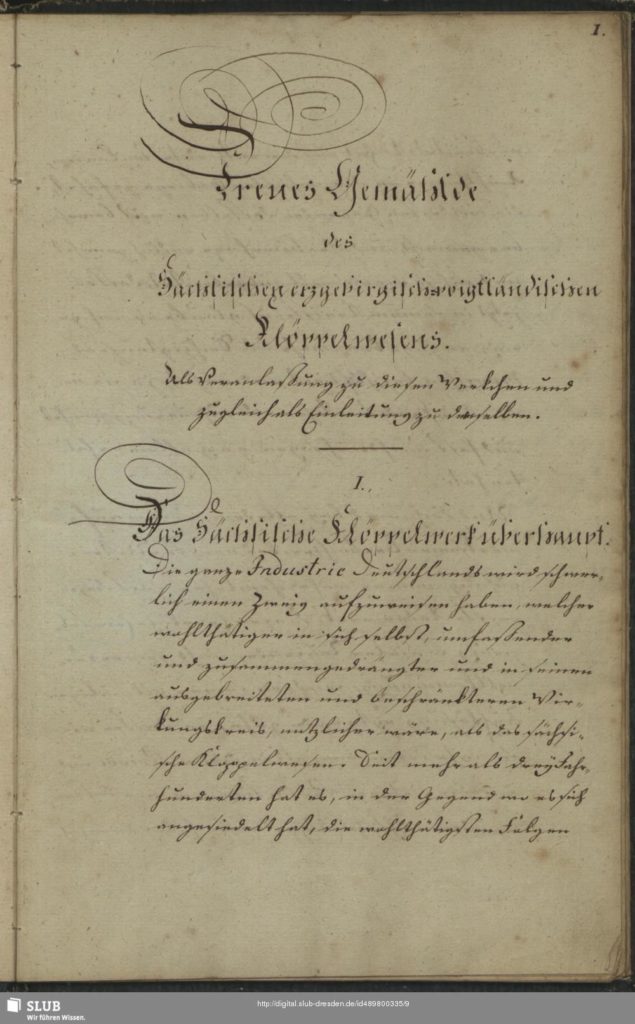 1.
Treues Gemählde
des
Sächsischen erzgebirgisch-voigtländischen
Klöppelwesens.
Als Veranlassung zu diesen Werkchen und
zugleich als Einleitung zu demselben.
I.
Das Sächsische Klöppelwerk überhaupt.
Die ganze Industrie Deutschlands wird schwer-
lich einen Zweig aufzuweisen haben, welcher
wohlthätiger in sich selbst, umfaßender
und zusammengedrängter und in seinen
ausgebreiteten und beschränkteren Wir-
kungskreis, nützlicher wäre, als das sächsi-
sche Klöppelwesen. Seit mehr als drey Jahr-
hunderten hat es, in der Gegend wo es sich
angesiedelt hat, die wohlthätigsten Folgen
SLUB
Wir führen Wissen.
http://digital.slub-dresden.de/id489800335/9